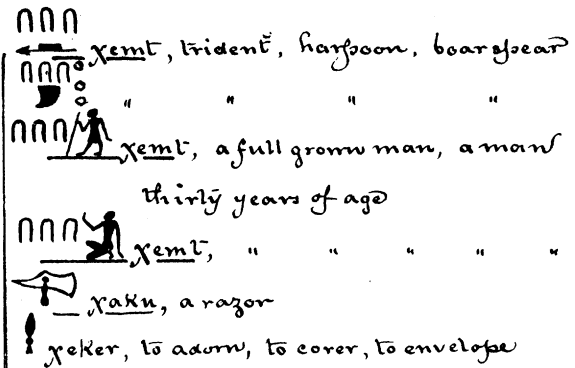 χemt, trident, harpoon, boarspear
" " " "
χemt, a full grown man, a man
thirty years of age
χemt, " " " " "
χaku, a razor
χeker, to adorn, to cover, to envelope